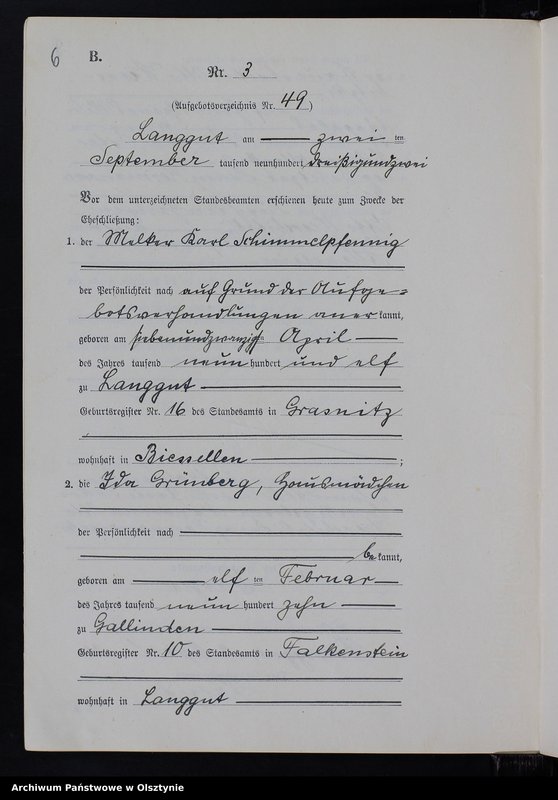 6 B.
Nr. 3
(Aufgebotsverzeichnis Nr. 49)
Langgut am zwei ten
September tausend neunhundert dreißigundzwei
Vor dem unterzeichneten Standesbeamten erschienen heute zum Zwecke der
Eheschließung:
1. der Melker Karl Schimmelpfennig
der Persönlichkeit nach auf Grund der Aufge=
botsverhandlungen aner kannt,
geboren am siebenundzwanzigsten April
des Jahres tausend neun hundert und elf
zu Langgut
Geburtsregister Nr. 16 des Standesamts in Grasnitz
wohnhaft in Biessellen ;
2. die Ida Grünberg, Hausmädchen
der Persönlichkeit nach
be kannt,
geboren am elf ten Februar
des Jahres tausend neun hundert zehn
zu Gallinden
Geburtsregister Nr. 10 des Standesamts in Falkenstein
wohnhaft in Langgut
Archiwum Państwowe w Olsztynie